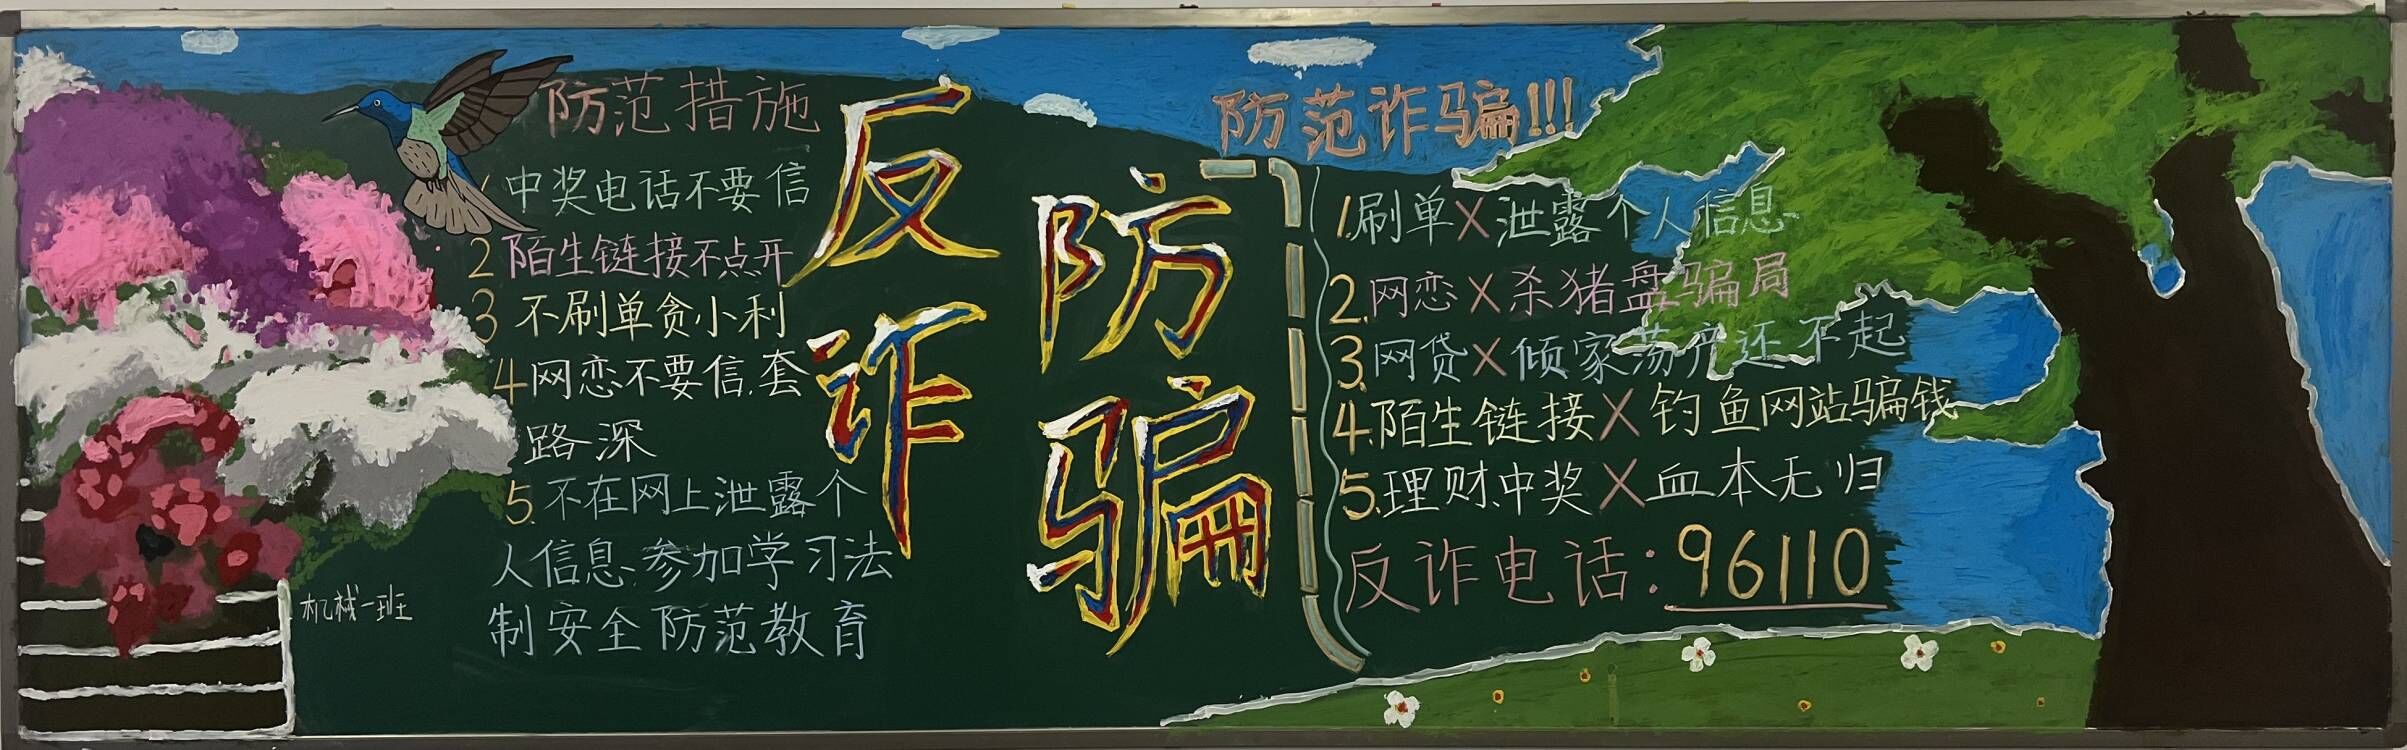 防范措施
中奖电话不要信
2陌生链接不点开
3 不刷单贪小利
4网恋不要信.套
路深
5.不在网上泄露个
人信息.参加学习法
制安全防范教育
机械一班
反诈
防骗
防范诈骗!!!
1.刷单X泄露个人信息
2.网恋X杀猪盘骗局
3.网贷X倾家荡产还不起
4.陌生链接X钓鱼网站骗钱
5.理财中奖X血本无归
反诈电话:96110